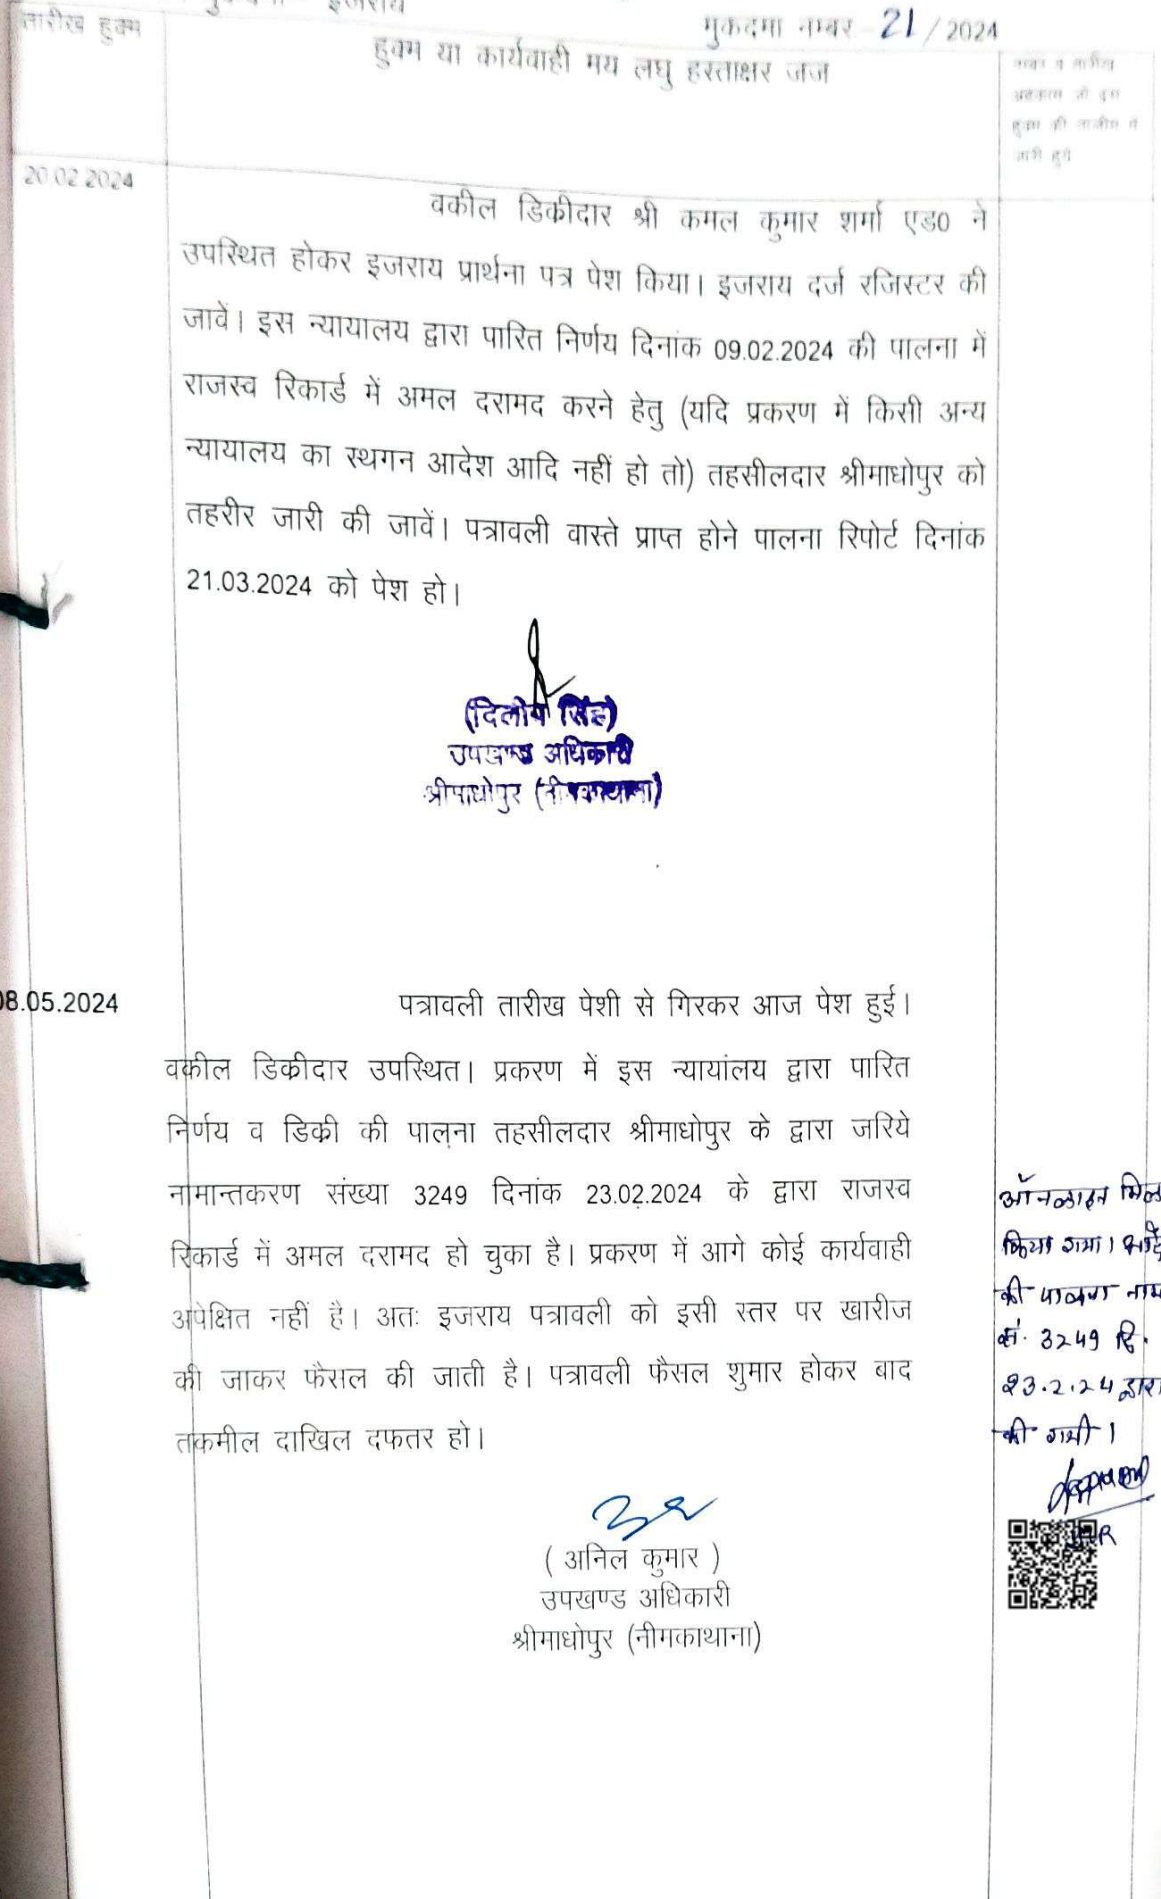 इजराय
मुकदमा नम्बर - 21 / 2024
तारीख हुक्म
हुक्म या कार्यवाही मय लघु हस्ताक्षर जज
नम्बर व तारीख
अहकाम जो इस
हुक्म की तामील में
जारी हुये
20.02.2024
वकील डिकीदार श्री कमल कुमार शर्मा एड0 ने
उपस्थित होकर इजराय प्रार्थना पत्र पेश किया। इजराय दर्ज रजिस्टर की
जावें। इस न्यायालय द्वारा पारित निर्णय दिनांक 09.02.2024 की पालना में
राजस्व रिकार्ड में अमल दरामद करने हेतु (यदि प्रकरण में किसी अन्य
न्यायालय का स्थगन आदेश आदि नहीं हो तो) तहसीलदार श्रीमाधोपुर को
तहरीर जारी की जावें। पत्रावली वास्ते प्राप्त होने पालना रिपोर्ट दिनांक
21.03.2024 को पेश हो।
(दिलीप सिंह)
उपखण्ड अधिकारी
श्रीमाधोपुर (नीमकाथाना)
08.05.2024
पत्रावली तारीख पेशी से गिरकर आज पेश हुई।
वकील डिकीदार उपस्थित। प्रकरण में इस न्यायांलय द्वारा पारित
निर्णय व डिकी की पालना तहसीलदार श्रीमाधोपुर के द्वारा जरिये
नामान्तकरण संख्या 3249 दिनांक 23.02.2024 के द्वारा राजस्व
रिकार्ड में अमल दरामद हो चुका है। प्रकरण में आगे कोई कार्यवाही
अपेक्षित नहीं है। अतः इजराय पत्रावली को इसी स्तर पर खारीज
की जाकर फैसल की जाती है। पत्रावली फैसल शुमार होकर बाद
तकमील दाखिल दफतर हो।
ऑनलाइन मिल
किया गया।
की पालना नाम
सं. 3249 दि.
23.2.24 द्वारा
की गयी।
( अनिल कुमार )
उपखण्ड अधिकारी
श्रीमाधोपुर (नीमकाथाना)